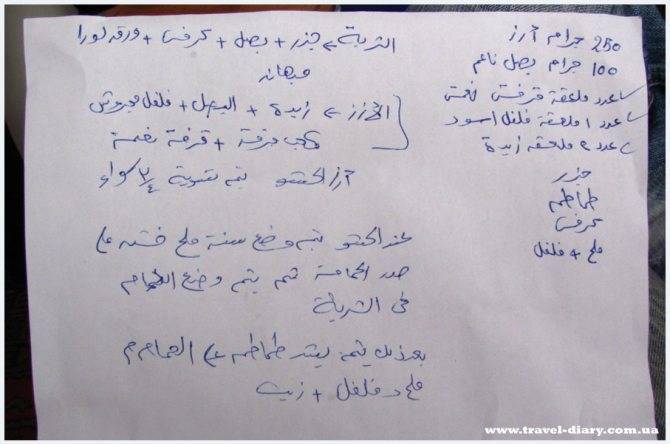 250 جرام أرز
100 جرام بصل ناعم
عدد ملعقة قرفة
عدد 1 ملعقة فلفل اسود
عدد 2 ملعقة زبدة
جزر
طماطم
كرفس
ملح + فلفل
الشربة ← جزر + بصل + كرفس + ورق لورا
حبهان
الأرز ← زبدة + البصل + فلفل
قرفة + قرفة نعمة
أرز الحشو يتم تسوية ٣/٤ سواء
عند الحشو يتم وضع سنة ملح على
صدر الحمامة ثم يتم وضع الحمام
فى الشربة
بعد ذلك يتم بشر طماطم على الحمام
ملح و فلفل + زيت
www.travel-diary.com.ua